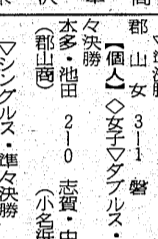 郡山女 3―1 磐
【個人】◇女子▽ダブルス・
々決勝
本多・池田 2―0 志賀・中
(郡山商) (小名浜
▽シングルス・準々決勝